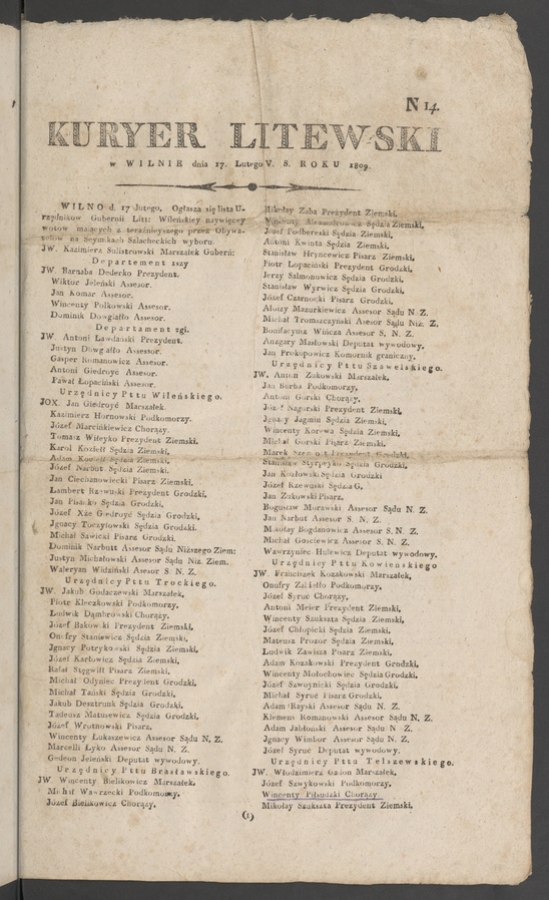 N 14.
KURYER LITEWSKI
w WILNIE dnia 17. Lutego V. S. ROKU 1809
WILNO d. 17 Lutego, Ogłasza się lista U-
rzędnikow Gubernii Litt: Wileńskiey naywięcey
wotow maiących z teraźnieyszego przez Obywa-
telow na Seymikach Szlacheckich wyboru.
JW. Kazimierz Sulistrowski Marszałek Guberń:
Departement 1szy
JW. Barnaba Dederko Prezydent.
Wiktor Jeleński Assesor.
Jan Komar Assesor.
Wincenty Polkowski Assesor.
Dominik Dowgiałło Assesor.
Departament 2gi.
JW. Antoni Ławdański Prezydent.
Justyn Dowgiałło Assesor.
Gasper Romanowicz Assesor.
Antoni Giedroyć Assesor.
Paweł Łopaciński Assesor.
Urzędnicy Pttu Wileńskiego.
JOX. Jan Giedroyć Marszałek.
Kazimierz Hornowski Podkomorzy.
Józef Marcińkiewicz Chorąży.
Tomasz Wileyko Prezydent Ziemski.
Karol Koziełł Sędzia Ziemski,
Adam Koziełł Sędzia Ziemski,
Józef Narbut Sędzia Ziemski.
Jan Ciechanowiecki Pisarz Ziemski.
Lambert Rzewuski Prezydent Grodzki.
Jan Pisanko Sędzia Grodzki.
Józef Xże Giedroyć Sędzia Grodzki,
Jgnacy Toczyłowski Sędzia Grodzki.
Michał Sawicki Pisarz Grodzki.
Dominik Narbutt Assesor Sądu Niższego Ziem:
Justyn Michałowski Assesor Sądu Niż. Ziem.
Waleryan Widziński Assesor S. N. Z.
Urzędnicy Pttu Trockiego.
JW. Jakub Godaczewski Marszałek,
Piotr Kleczkowski Podkomorzy.
Ludwik Dąmbrowski Chorąży,
Józef Bakowski Prezydent Ziemski,
Onufry Staniewicz Sędzia Ziemski,
Jgnacy Potrykowski Sędzia Ziemski,
Józef Karłowicz Sędzia Ziemski,
Rafał Stęgwiłł Pisarz Ziemski,
Michał Odyniec Prezydent Grodzki,
Michał Tański Sędzia Grodzki,
Jakub Desztrunk Sędzia Grodzki,
Tadeusz Matusewicz Sędzia Grodzki,
Józef Wrotnowski Pisarz,
Wincenty Łukaszewicz Assesor Sądu N. Z.
Marcelli Łyko Assesor Sądu N. Z.
Gedeon Jeleński Deputat wywodowy.
Urzędnicy Pttu Brasławskiego.
JW. Wincenty Bielikowicz Marszałek,
Michał Wawrzecki Podkomorzy,
Józef Bielikowicz Chorąży,
Mikołay Zaba Prezydent Ziemski,
Sędzia Ziemski,
Józef Podberski Sędzia Ziemski,
Antoni Kwinta Sędzia Ziemski,
Stanisław Hryncewicz Pisarz Ziemski,
Piotr Łopaciński Prezydent Grodzki,
Jerzy Salmonowicz Sędzia Grodzki,
Stanisław Wyrwicz Sędzia Grodzki,
Józef Czarnocki Pisarz Grodzki.
Aloizy Mazurkiewicz Assesor Sądu N. Z.
Michał Tromszczyński Assesor Sądu Niż. Z.
Bonifacyusz Wincza Assesor S. N. Z.
Anzgary Masłowski Deputat wywodowy,
Jan Prokopowicz Komornik graniczny,
Urzędnicy Pttu Szawelskiego.
JW. Anton Zukowski Marszałek,
Jan Serba Podkomorzy,
Antoni Górski Chorąży,
Józef Nagurski Prezydent Ziemski,
Jgnacy Jagmin Sędzia Ziemski,
Wincenty Korewa Sędzia Ziemski,
Michał Górski Pisarz Ziemski.
Marek Prezydent Grodzki,
Stanisław Styrpeyko Sędzia Grodzki,
Jan Kozłowski Sędzia Grodzki
Józef Rzewuski Sędzia G,
Jan Zukowski Pisarz,
Bogusław Morawski Assesor Sądu N. Z.
Jan Narbut Assesor S. N. Z.
Mikołay Bogdanowicz Assesor S. N. Z.
Michał Gosciewicz Assesor S. N. Z.
Wawrzyniec Hulewicz Deputat wywodowy,
Urzędnicy Pttu Kowieńskiego
JW. Franciszek Kozakowski Marszałek,
Onufry Zaliotło Podkomorzy,
Józef Syruć Chorąży,
Antoni Meier Prezydent Ziemski,
Wincenty Szukszta Sędzia Ziemski,
Józef Chłopicki Sędzia Ziemski,
Mateusz Prozor Sędzia Ziemski,
Ludwik Zawisza Pisarz Ziemski,
Adam Kozakowski Prezydent Grodzki,
Wincenty Mołochowiec Sędzia Grodzki,
Józef Sawoynicki Sędzia Grodzki,
Michał Syruć Pisarz Grodzki,
Adam Rayski Assesor Sądu N. Z.
Klemens Romanowski Assesor Sądu N. Z.
Adam Jabłoński Assesor Sądu N. Z.
Jgnacy Wimbor Assesor Sądu N. Z.
Józef Syruć Deputat wywodowy.
Urzędnicy Pttu Telszewskiego.
JW. Włodzimierz Gadon Marszałek,
Józef Szwykowski Podkomorzy,
Wincenty Piłsudzki Chorąży
Mikołay Szukszta Prezydent Ziemski,
(1)